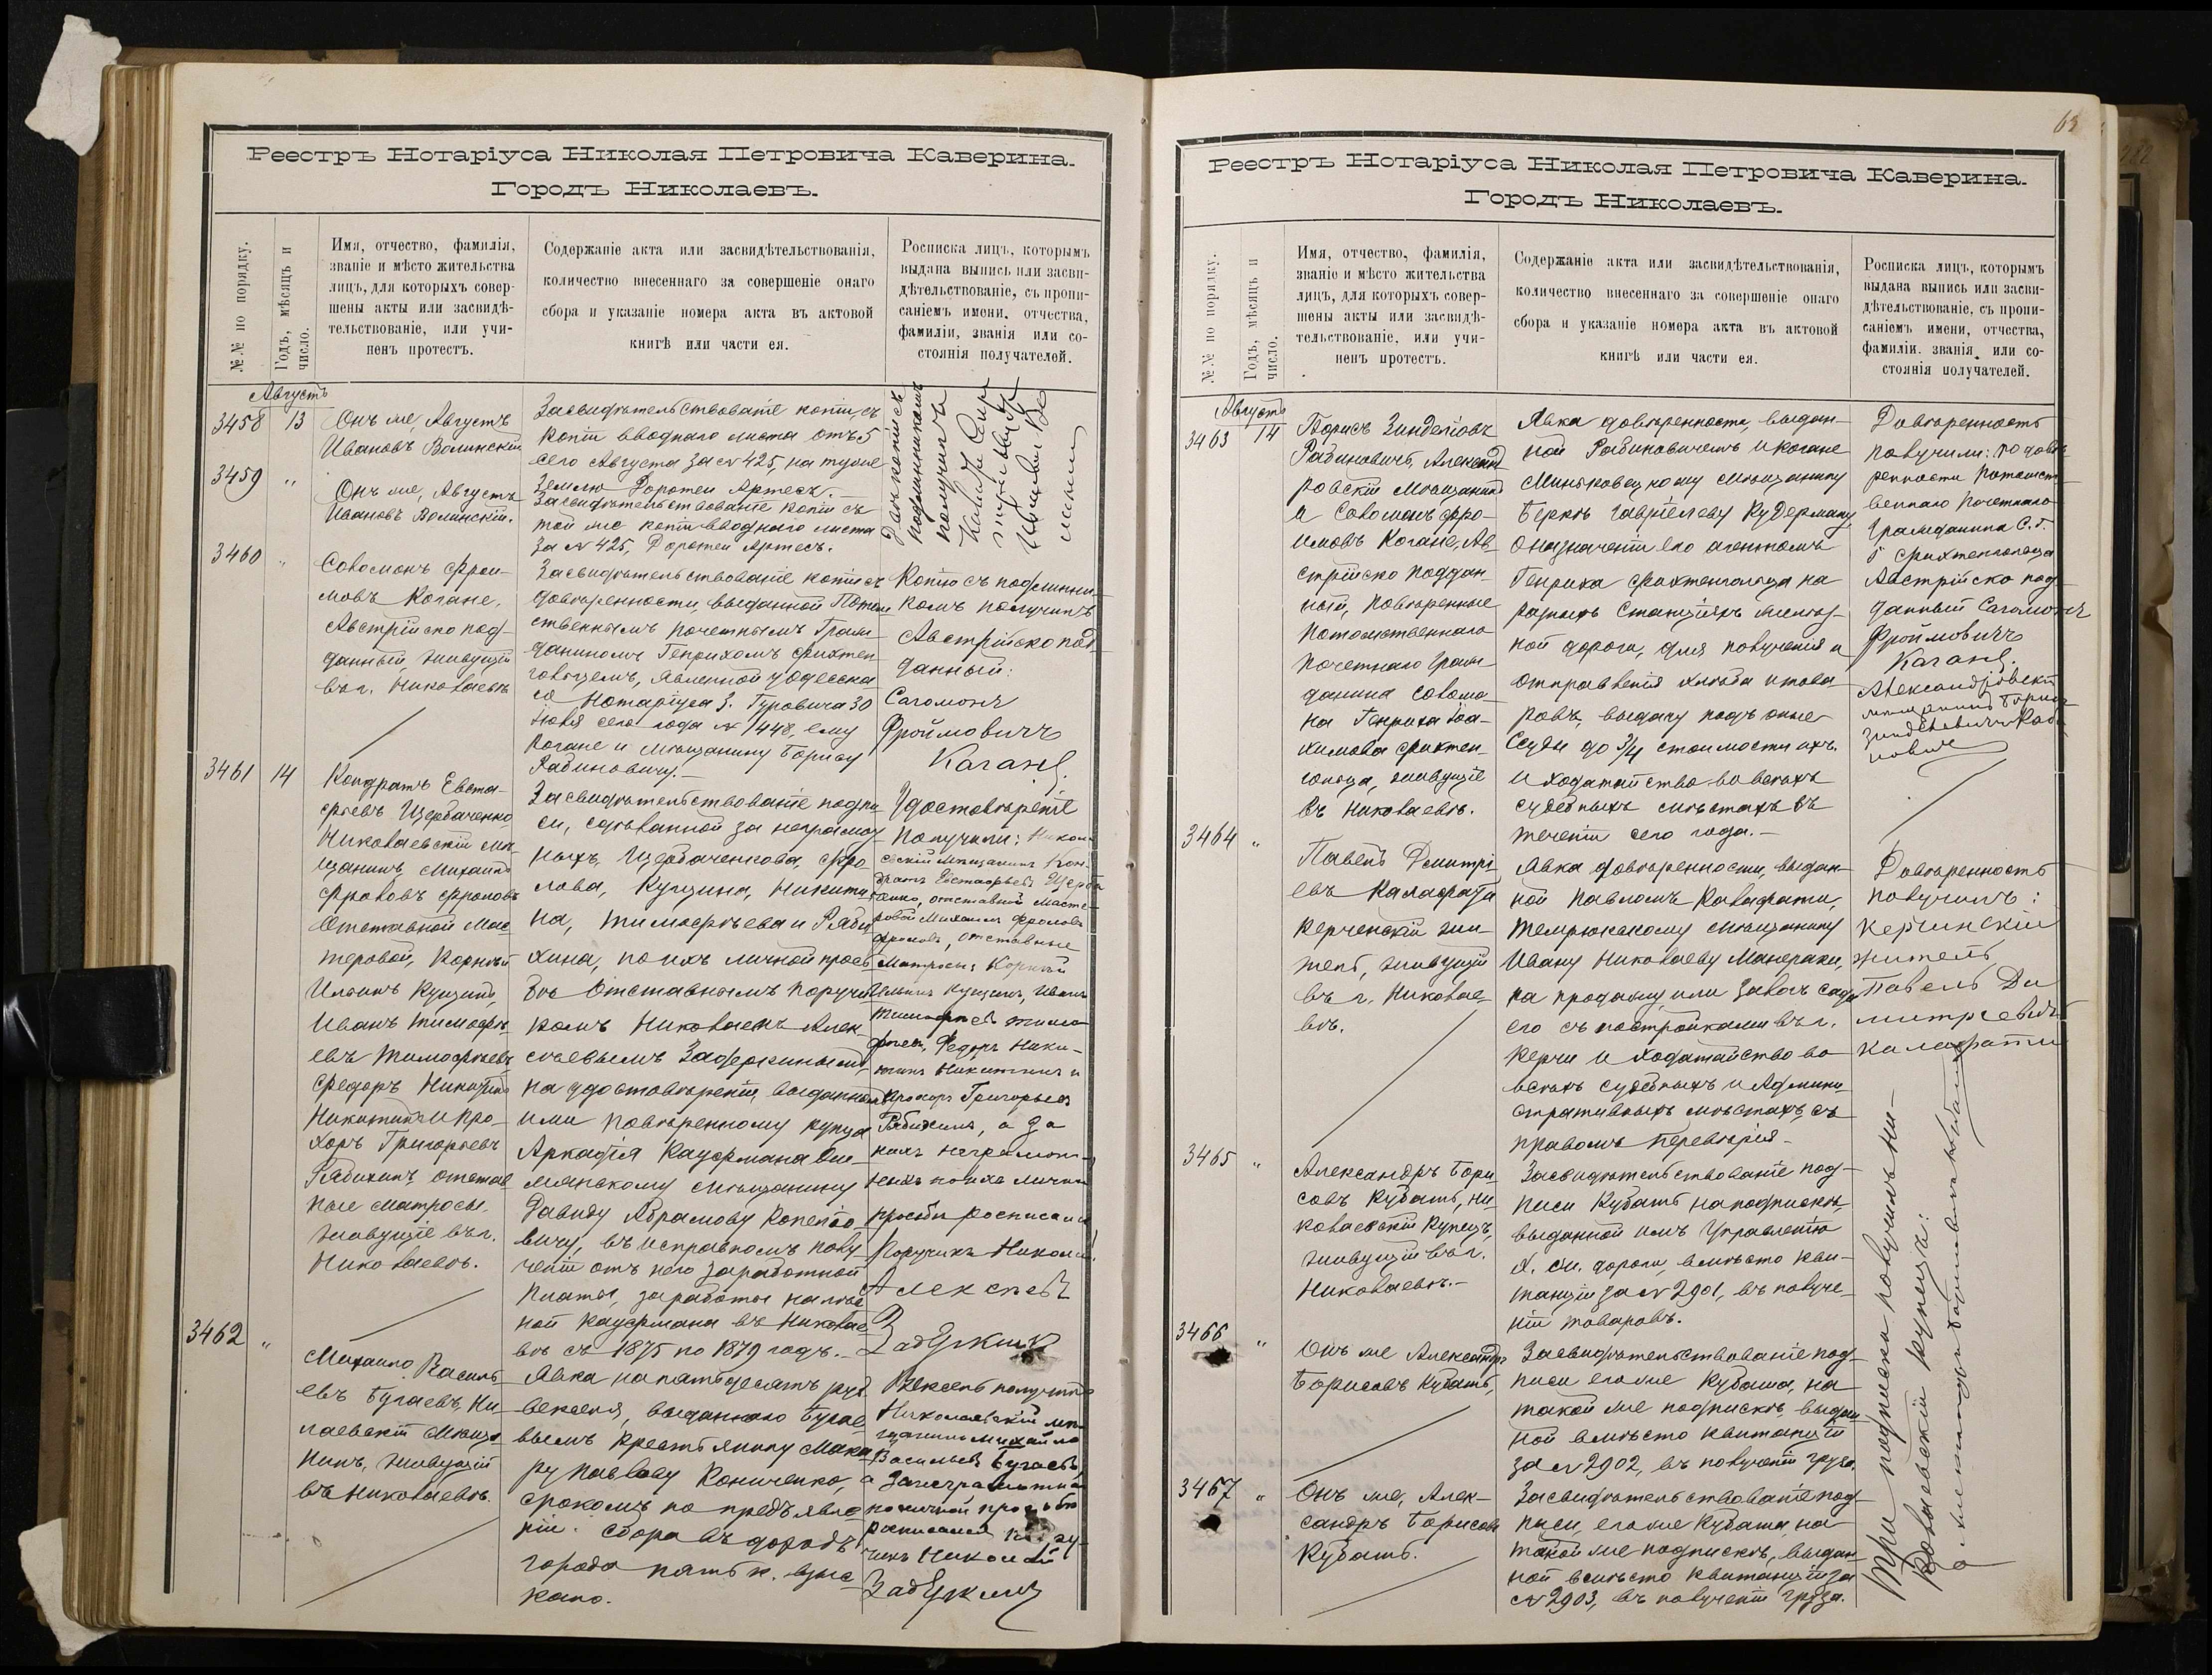 Реестръ Нотаріуса Николая Петровича Каверина.
Городъ Николаевъ.
№№ по порядку.
Годъ, мѣсяцъ и
число.
Имя, отчество, фамилія,
званіе и мѣсто жительства
лицъ, для которыхъ совер-
шены акты или засвидѣ-
тельствованіе, или учи-
ненъ протестъ.
Содержаніе акта или засвидѣтельствованія,
количество внесеннаго за совершеніе онаго
сбора и указаніе номера акта въ актовой
книгѣ или части ея.
Росписка лицъ, которымъ
выдана выпись или засви-
дѣтельствованіе, съ пропи-
саніемъ имени, отчества,
фамиліи, званія или со-
стоянія получателей.
Августъ
3458 13
Онъ же, Августъ
Ивановъ Волинскій
Засвидѣтельствованіе копіи, съ
копіи вводнаго листа отъ 5
сего Августа за № 425, на
землю Доротеи Артесъ.
3459 "
Онъ же, Августъ
Ивановъ Волинскій.
Засвидѣтельствованіе копіи съ
той же копіи вводнаго листа
за № 425, Доротеи Артесъ.
подлинникомъ
получилъ
3460 "
Соломонъ Фрои-
мовъ Когане,
Австрійско под-
данный, живущій
въ г. Николаевѣ
Засвидѣтельствованіе копіи съ
довѣренности, выданной Потом
ственнымъ почетнымъ Граж-
даниномъ Генрихомъ Фихтен-
гольцемъ, явленной у Одесска
го Нотаріуса З. Гуровича 30
Іюля сего года № 1448, ему
Когане и мѣщанину Борису
Рабиновичу.—
Копію съ подлинни-
комъ получилъ
Австрійско под
данный:
Саломонъ
Фроймовичъ
Каганъ.
3461 14
Кондратъ Евста-
фьевъ Щербаченко
Николаевскій мѣ-
щанинъ, Михаилъ
Фроловъ Фроловъ
Отставной Мас-
теровой, Корнѣй
Ильинъ Кущинъ,
Иванъ Тимофѣ-
евъ Тимофѣевъ,
Федоръ Никитинъ
Никитинъ и Про-
хоръ Григорьевъ
Рабихинъ, отстав
ные матросы,
живущіе въ г.
Николаевѣ.
Засвидѣтельствованіе подпи
си, сдѣланной за неграмот
ныхъ, Щербаченкова, Фро-
лова, Кущина, Никити-
на, Тимофѣева и Раби-
хина, по ихъ личной прось
бѣ Отставнымъ поручи
комъ Николаемъ Алек
сѣевымъ Задеркинымъ,
на удостовѣреніи, выданномъ
ими повѣренному купца
Аркадія Кауфмана Сме-
лянскому мѣщанину
Давиду Абрамову Копейко
вичу, въ исправномъ полу
ченіи отъ него заработной
платы, за работы на
ной Кауфмана въ Николае
вѣ съ 1875 по 1879 годъ.—
Удостовѣреніе
получили: Никола
евскій мѣщанинъ Кон
дратъ Евстафьевъ Щерба
ченко, отставной Масте-
ровой Михаилъ Фроловъ
Фроловъ, отставные
Матросы: Корнѣй
Ильинъ Кущинъ, Иванъ
Тимофѣевъ Тимо
фѣевъ, Федоръ Ники-
тинъ Никитинъ и
Прохоръ Григорьевъ
Рабихинъ, а за
нихъ неграмот-
ныхъ по ихъ личной
просьбѣ росписался
Поручикъ Николай
Алексѣевъ
Задеркинъ
3462 "
Михаилъ Василь-
евъ Бугаевъ, Ни-
лаевскій Мѣща-
нинъ, живущій
въ Николаевѣ.
Явка на пятьдесятъ руб.
векселя, выданнаго Бугае
вымъ крестьянину Мака
ру Павлову Кониченко,
срокомъ по предъявле-
ніи. Сбора въ доходъ
города пять к. взыс-
кано.
Вексель получилъ
Николаевскій мѣ
щанинъ Михайло
Васильевъ Бугаевъ
а за неграмотна
по личной просьбѣ
росписался Пору-
чикъ Николай
Задеркинъ
63
Реестръ Нотаріуса Николая Петровича Каверина.
Городъ Николаевъ.
№№ по порядку.
Годъ, мѣсяцъ и
число.
Имя, отчество, фамилія,
званіе и мѣсто жительства
лицъ, для которыхъ совер-
шены акты или засвидѣ-
тельствованіе, или учи-
ненъ протестъ.
Содержаніе акта или засвидѣтельствованія,
количество внесеннаго за совершеніе онаго
сбора и указаніе номера акта въ актовой
книгѣ или части ея.
Росписка лицъ, которымъ
выдана выпись или засви-
дѣтельствованіе, съ пропи-
саніемъ имени, отчества,
фамиліи. званія или со-
стоянія получателей.
Августъ
3463 14
Борисъ Зинделіовъ
Рабиновичъ, Александ
ровскій Мѣщанинъ
и Соломонъ Фро-
имовъ Когане, Ав-
стрійско поддан-
ный, повѣренные
Потомственнаго
почетнаго Граж-
данина Соломо-
на Генриха Іоа-
химова Фихтен-
гольца, живущіе
въ Николаевѣ.
Явка довѣренности, выдан-
ной Рабиновичемъ и Когане
Миньковецкому мѣщанину
Беркѣ Гавріелеву Кудерману
о назначеніи его агентомъ
Генриха Фихтенгольца на
разныхъ станціяхъ желѣз-
ной дороги, для полученія и
отправленія хлѣба и това
ровъ, выдачу подъ оные
ссуды до 3/4 стоимости ихъ.
и ходатайство во всѣхъ
судебныхъ мѣстахъ въ
теченіи сего года.—
Довѣренность
получили: по довѣ
ренности Потомст
веннаго Почетнаго
Гражданина С. Г.
Фихтенгольца
Австрійско под
данный Саломонъ
Фроймовичъ
Каганъ.
Александровскій
мѣщанинъ Борисъ
Зинделевичъ Раби
новичъ
3464 "
Павелъ Дмитрі
евъ Калафати
Керченскій жи-
тель, живущій
въ г. Николае-
вѣ.
Явка довѣренности, выдан-
ной Павломъ Калафати,
Темрюкскому мѣщанину
Ивану Николаеву Манераки,
на продажу или залогъ сада
его съ постройками въ г.
Керчи и ходатайство во
всѣхъ судебныхъ и Админи
стративныхъ мѣстахъ, съ
правомъ перевѣрія—
Довѣренность
получилъ:
Керчинскій
житель
Павелъ Ди
митріевичъ
Калафати
3465 "
Александръ Бори
совъ Кубашъ, Ни-
колаевскій Купецъ,
живущій въ г.
Николаевѣ.—
Засвидѣтельствованіе под-
писи Кубашъ на подпискѣ,
выданной имъ Управленію
Х. Н. дороги, вмѣсто кви-
танціи за № 2901, въ получе-
ніи товаровъ.
3466 "
Онъ же Александръ
Борисовъ Кубашъ,
Засвидѣтельствованіе под-
писи его же Кубаша, на
такой же подпискѣ, выдан
ной вмѣсто квитанціи
за № 2902, въ полученіи груза.
3467 "
Онъ же, Алек-
сандръ Борисовъ
Кубашъ.
Засвидѣтельствованіе под-
писи, его же Кубаша, на
такой же подпискѣ, выдан-
ной вмѣсто квитанціи за
№ 2903, въ полученіи груза.
Три подписки получилъ Ни-
колаевскій купецъ:
Александръ Борисовичъ Кубашъ